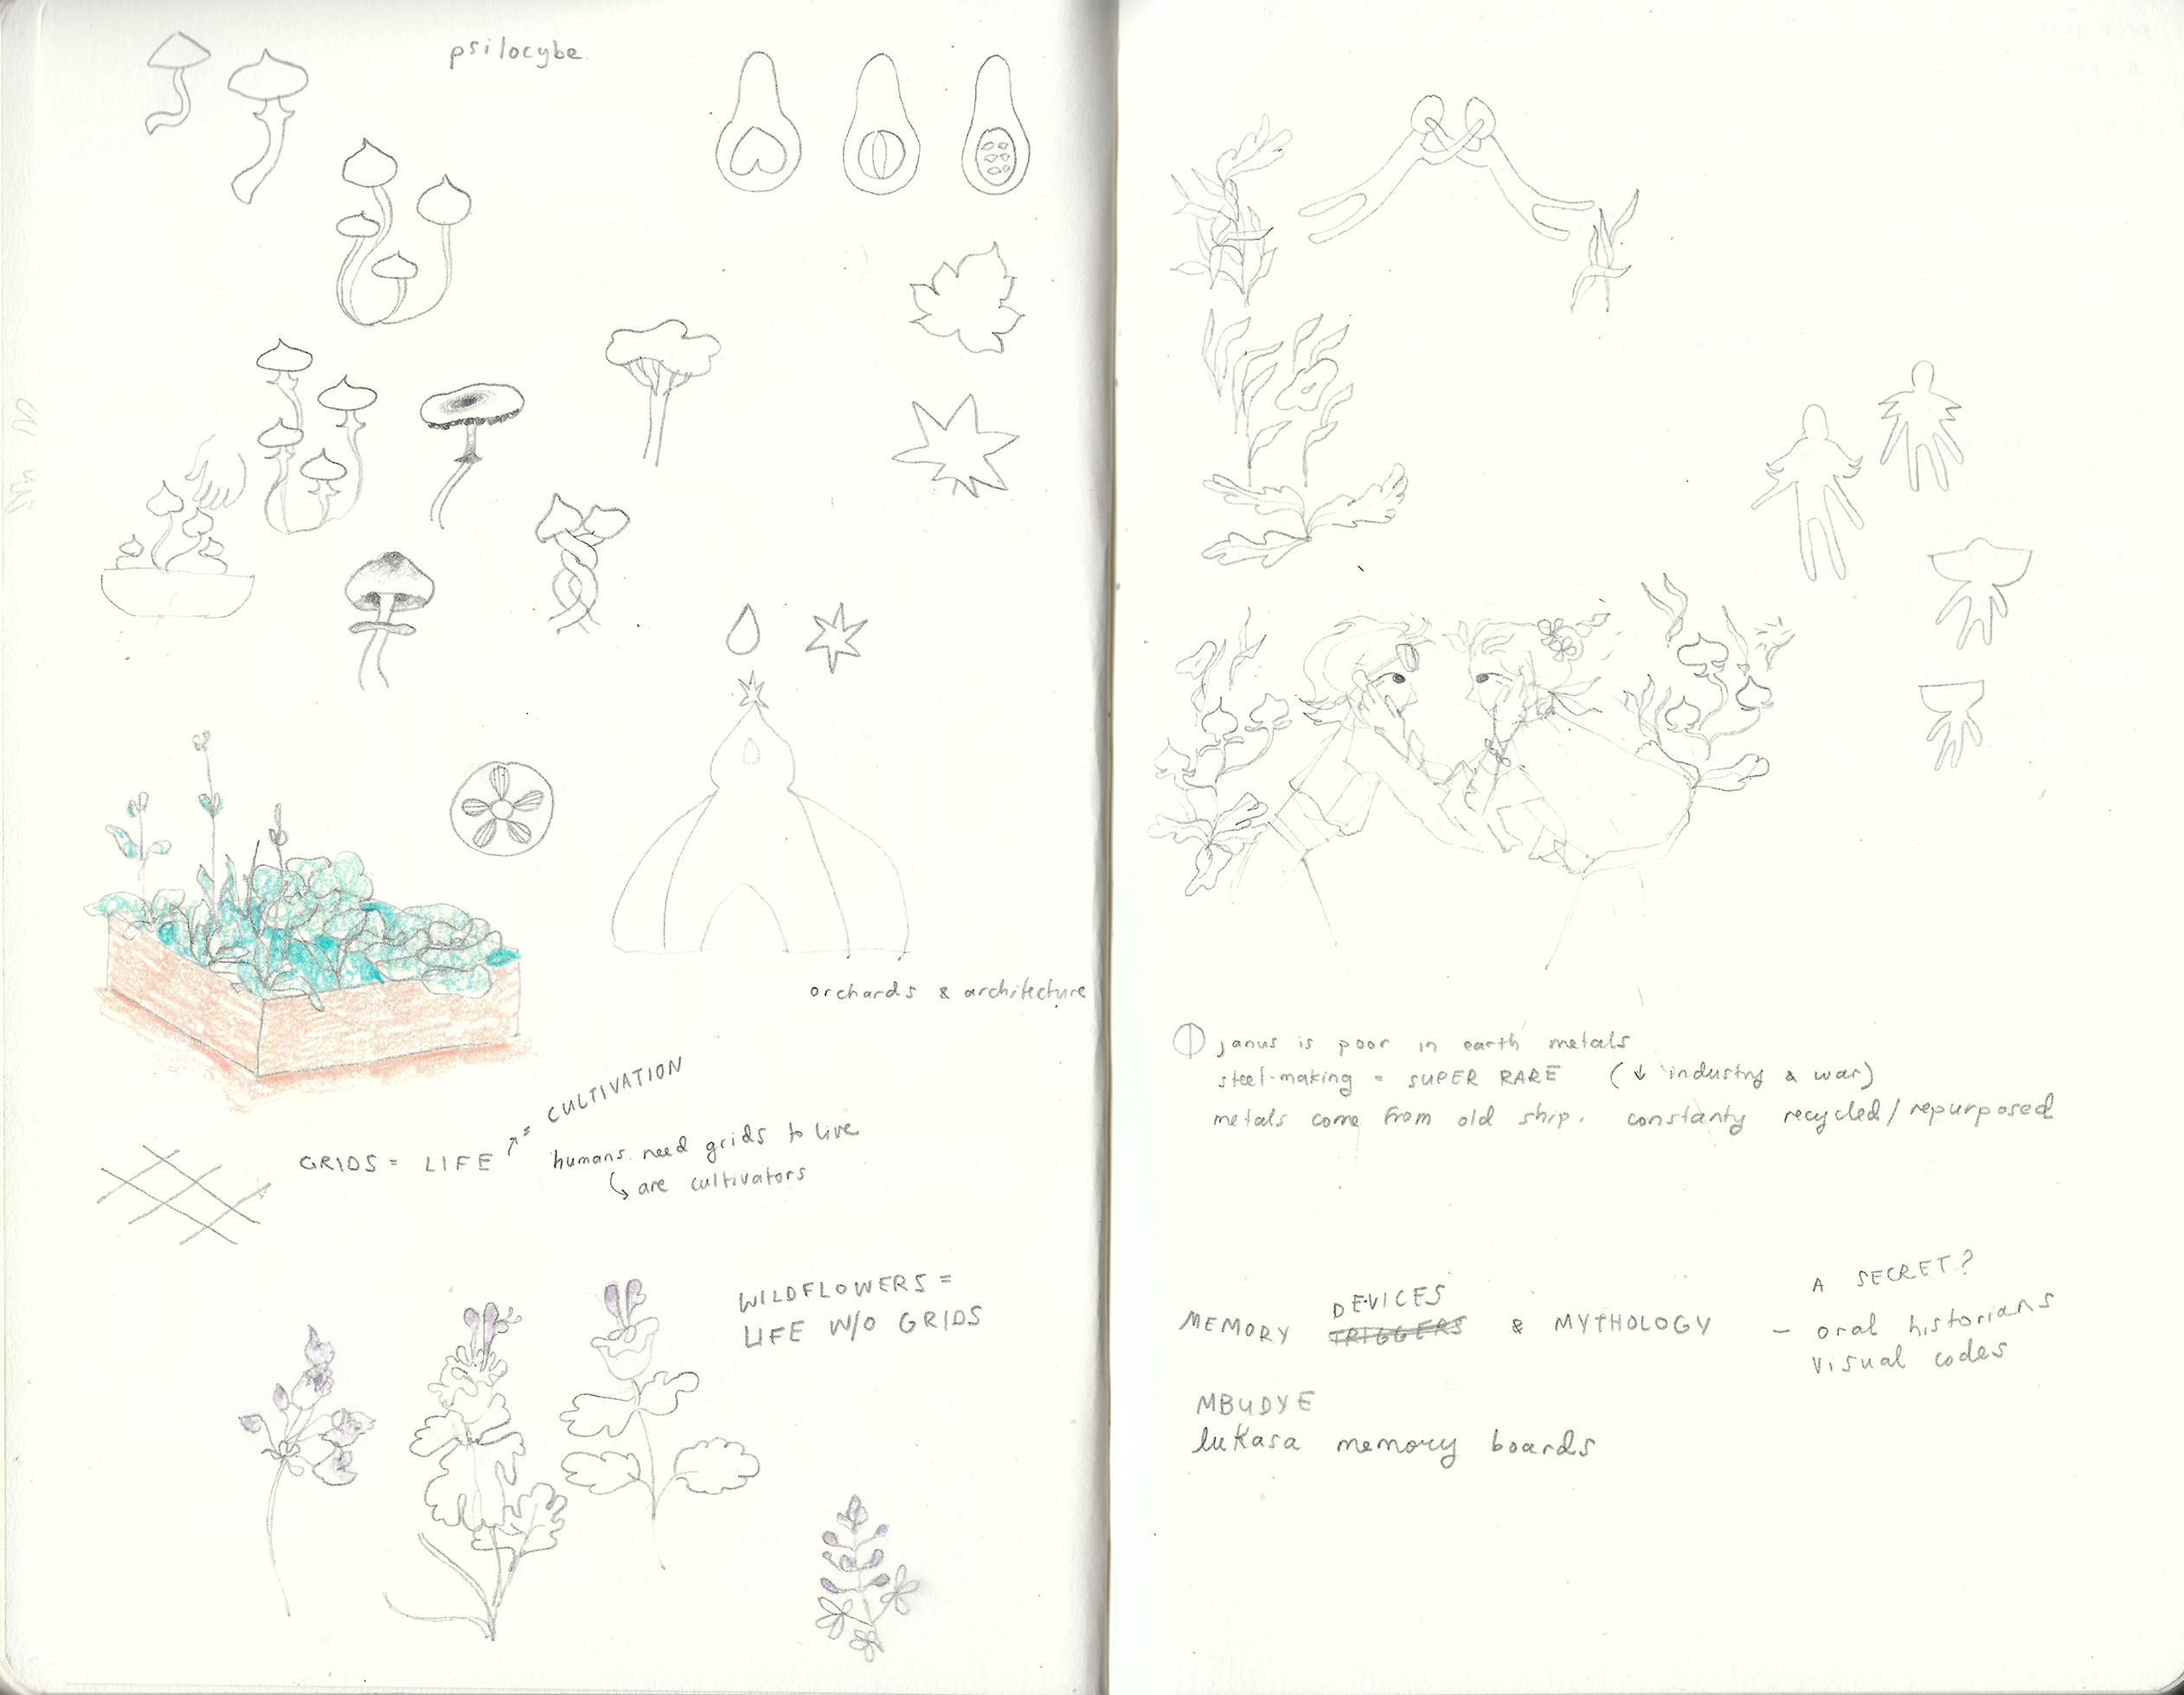 psilocybe
orchards & architecture
GRIDS = LIFE
= CULTIVATION
humans need grids to live
are cultivators
WILDFLOWERS =
LIFE W/O GRIDS
Janus is poor in earth metals
steel-making = SUPER RARE (↓ industry & war)
metals come from old ship. constanty recycled/repurposed
MEMORY TRIGGERS DEVICES & MYTHOLOGY
A SECRET?
– oral historians
visual codes
MBUDYE
lukasa memory boards